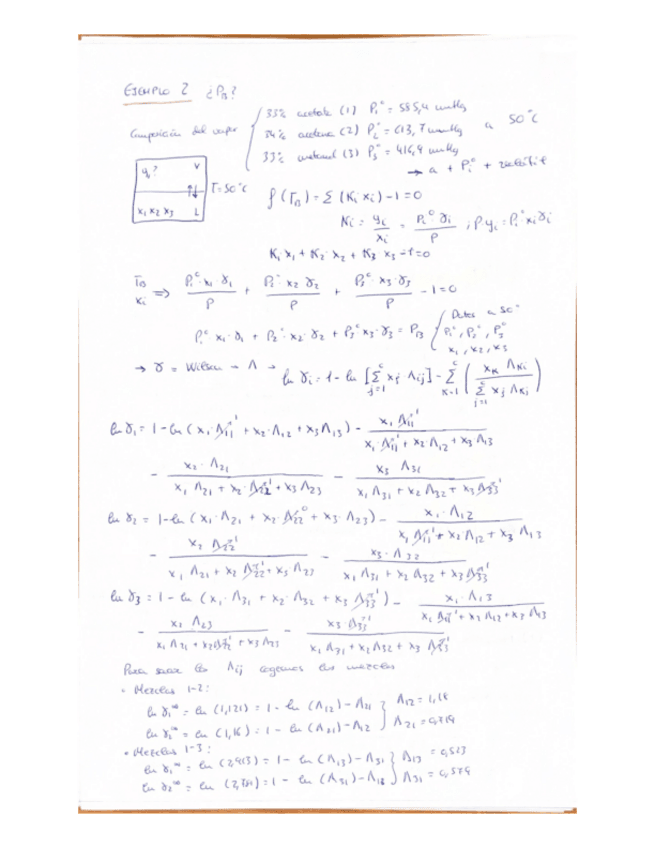 EJEMPLO 2 ¿P_B?
Composición del vapor
33% acetato (1) P₁° = 585,4 mmHg
34% acetona (2) P₂° = 613,7 mmHg a 50°C
33% metanol (3) P₃° = 416,9 mmHg
→ a + P_i° + volátil
y_i? V
x₁ x₂ x₃ L
T=50°C
f(T_B) = Σ (K_i x_i) - 1 = 0
K_i = y_i/x_i = P_i° γ_i/P ; P y_i = P_i° x_i γ_i
K₁ x₁ + K₂ x₂ + K₃ x₃ - 1 = 0
T_B K_i ⟹ P₁° x₁ γ₁/P + P₂° x₂ γ₂/P + P₃° x₃ γ₃/P - 1 = 0
P₁° x₁ γ₁ + P₂° x₂ γ₂ + P₃° x₃ γ₃ = P_B
Datos a 50°
P₁°, P₂°, P₃°
x₁, x₂, x₃
→ γ = Wilson → Λ → ln γ_i = 1 - ln [Σ_{j=1}^c x_j Λ_ij] - Σ_{K=1}^c (x_K Λ_Ki / Σ_{j=1}^c x_j Λ_Kj)
ln γ₁ = 1 - ln (x₁ Λ₁₁¹ + x₂ Λ₁₂ + x₃ Λ₁₃) - x₁ Λ₁₁¹ / (x₁ Λ₁₁¹ + x₂ Λ₁₂ + x₃ Λ₁₃)
- x₂ Λ₂₁ / (x₁ Λ₂₁ + x₂ Λ₂₂¹ + x₃ Λ₂₃) - x₃ Λ₃₁ / (x₁ Λ₃₁ + x₂ Λ₃₂ + x₃ Λ₃₃¹)
ln γ₂ = 1 - ln (x₁ Λ₂₁ + x₂ Λ₂₂ + x₃ Λ₂₃) - x₁ Λ₁₂ / (x₁ Λ₁₁¹ + x₂ Λ₁₂ + x₃ Λ₁₃)
- x₂ Λ₂₂¹ / (x₁ Λ₂₁ + x₂ Λ₂₂¹ + x₃ Λ₂₃) - x₃ Λ₃₂ / (x₁ Λ₃₁ + x₂ Λ₃₂ + x₃ Λ₃₃¹)
ln γ₃ = 1 - ln (x₁ Λ₃₁ + x₂ Λ₃₂ + x₃ Λ₃₃¹) - x₁ Λ₁₃ / (x₁ Λ₁₁¹ + x₂ Λ₁₂ + x₃ Λ₁₃)
- x₂ Λ₂₃ / (x₁ Λ₂₁ + x₂ Λ₂₂¹ + x₃ Λ₂₃) - x₃ Λ₃₃¹ / (x₁ Λ₃₁ + x₂ Λ₃₂ + x₃ Λ₃₃¹)
Para sacar las Λ_ij cogemos las mezclas
• Mezclas 1-2:
ln γ₁^∞ = ln (1,121) = 1 - ln (Λ₁₂) - Λ₂₁ Λ₁₂ = 1,18
ln γ₂^∞ = ln (1,16) = 1 - ln (Λ₂₁) - Λ₁₂ Λ₂₁ = 0,719
• Mezclas 1-3:
ln γ₁^∞ = ln (2,913) = 1 - ln (Λ₁₃) - Λ₃₁ Λ₁₃ = 0,523
= 1 - ln (Λ₃₁) - Λ₁₃ Λ₃₁ = 0,579